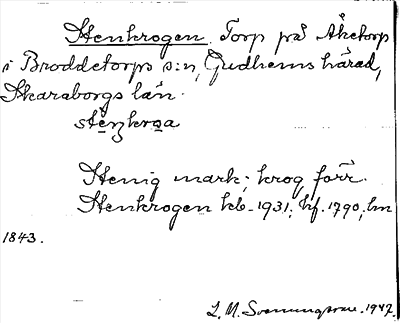 Stenkrogen. Torp på Åketorp
i Broddetorps s:n, Gudhems härad,
Skaraborgs län.
Stenig mark; krog förr.
Stenkrogen kb. 1931; hf. 1790, lm
1843.
L. M. Svenungsson. 1947.